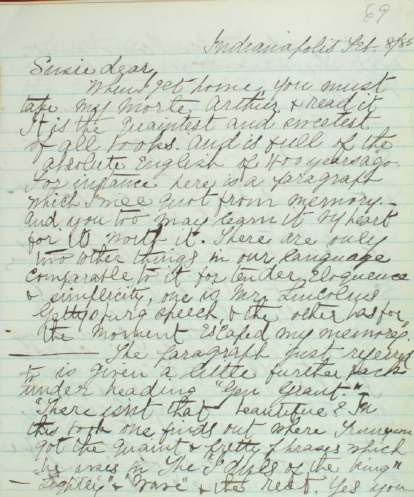 69
Indianapolis Feb. 8/85
Susie dear,
When I get home, you must
take my Morte Arthur & read it
It is the quaintest and sweetest
of all books. And is full of the
absolute English of 400 years ago
For instance here is a paragraph
which I will quot from memory—
And you too may learn it by heart
for its worth it. There are only
two other things in our language
comparable to it for tender eloquence
& simplicity, one is Mr. Lincolns
Gettysburg speech, & the other has for
the moment escaped my memory".
The paragraph just referred
to is given a little further back
under heading "Gen Grant."
"There isnt that beautiful? In
this book one finds out where Tennyson
got the quaint & pretty phrases which
he uses in The Idyls of the King"
"Lightly" & & the rest Yes you